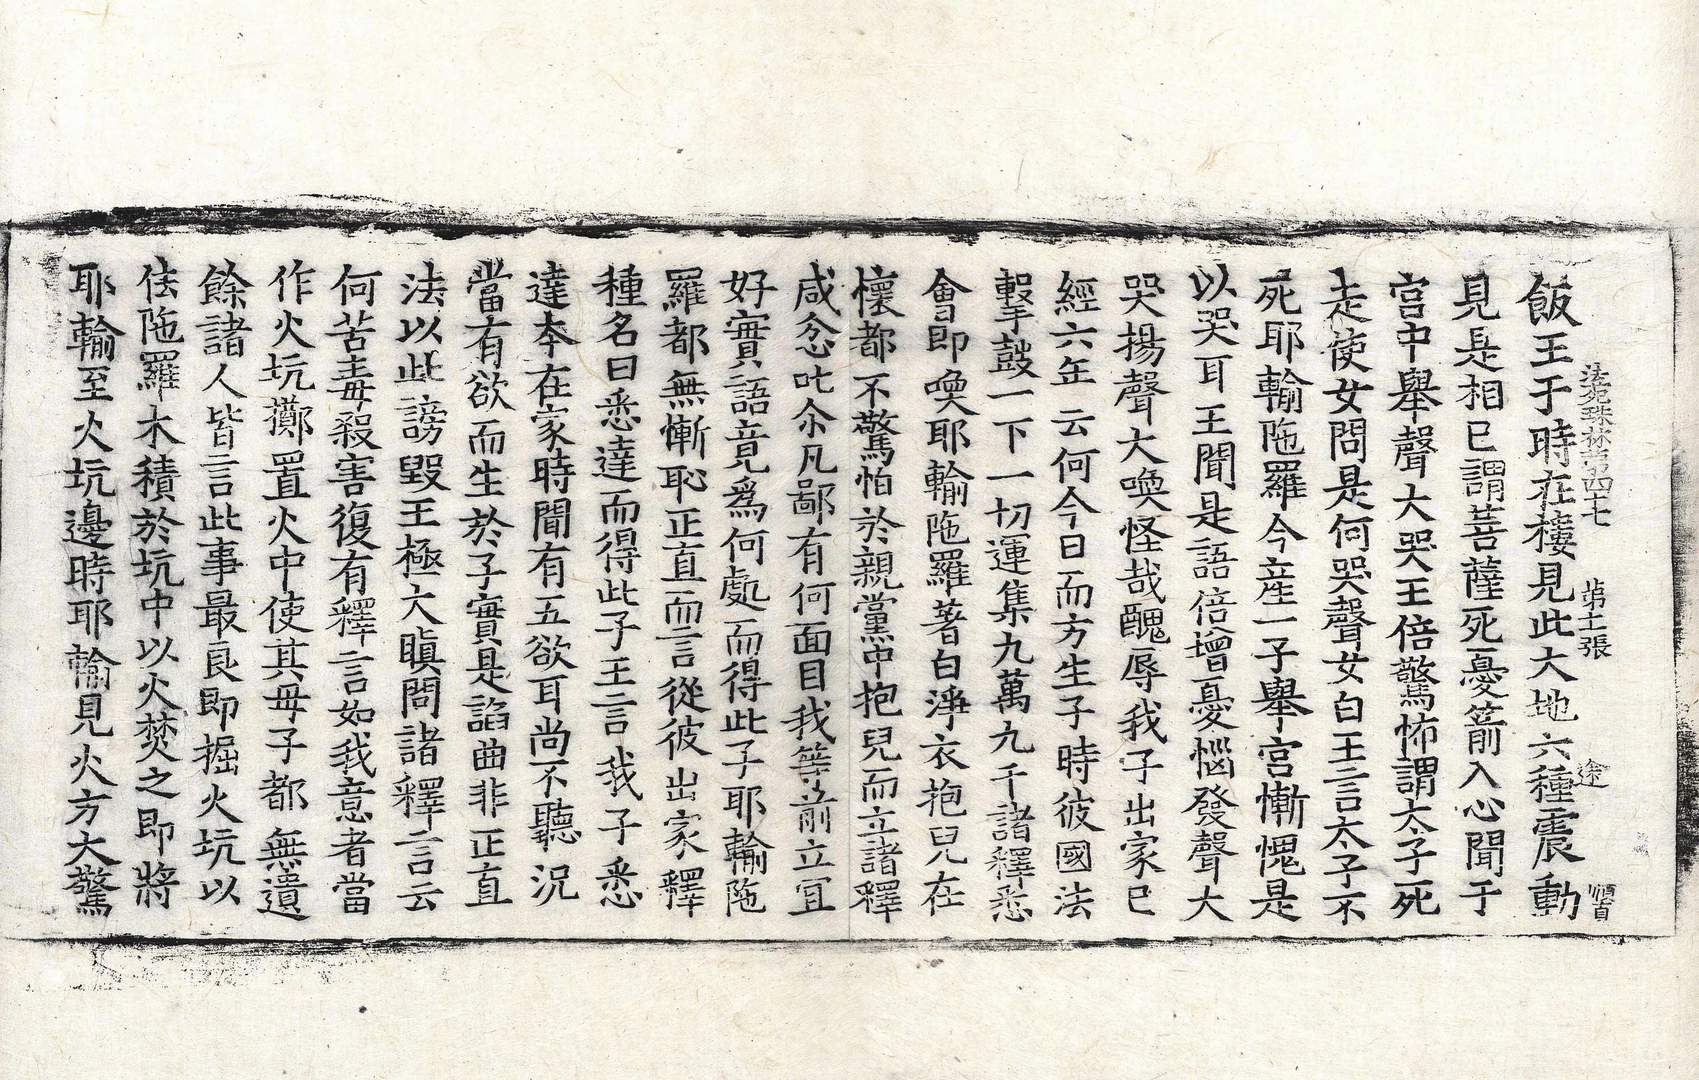 法苑珠林第四十七　第十二張　途　順首
飯王于時在樓見此大地六種震動
見是相已謂菩薩死憂箭入心聞于
宮中舉聲大哭王倍驚怖謂太子死
走使女問是何哭聲女白王言太子不
死耶輸陁羅今產一子舉宮慚愧是
以哭耳王聞是語倍增憂惱發聲大
哭揚聲大喚怪哉醜辱我子出家已
經六年云何今日而方生子時彼國法
擊鼓一下一切運集九萬九千諸釋悉
會即喚耶輸陁羅著白淨衣抱兒在
懷都不驚怕於親黨中抱兒而立諸釋
咸忿叱尒凡鄙有何面目我等前立宜
好實語竟爲何處而得此子耶輸陁
羅都無慚恥正直而言從彼出家釋
種名曰悉達而得此子王言我子悉
達本在家時聞有五欲耳尚不聽況
當有欲而生於子實是諂曲非正直
法以此謗毀王極大瞋問諸釋言云
何苦毒殺害復有釋言如我意者當
作火坑擲置火中使其母子都無遺
餘諸人皆言此事最良即掘火坑以
佉陁羅木積於坑中以火焚之即將
耶輸至火坑邊時耶輸見火方大驚